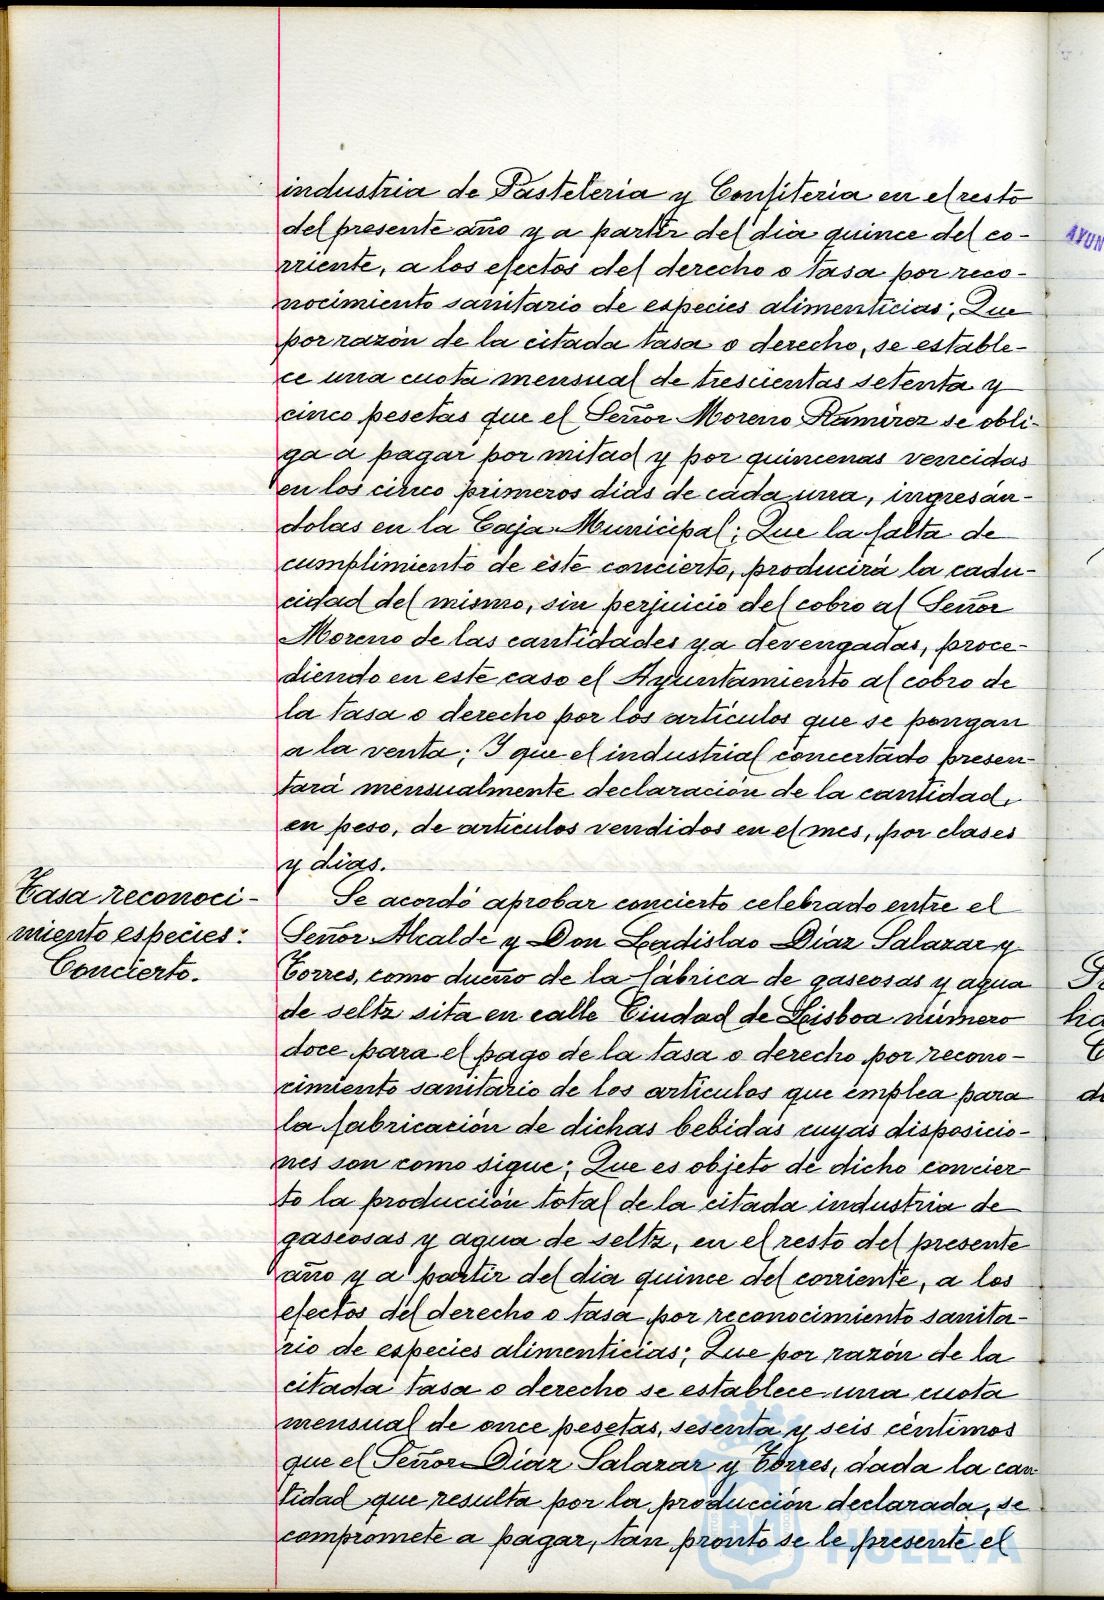 industria de Pasteleria y Confiteria en el resto
del presente año y a partir del dia quince del co-
rriente, a los efectos del derecho o tasa por reco-
nocimiento sanitario de especies alimenticias; Que
por razón de la citada tasa o derecho, se estable-
ce una cuota mensual de trescientas setenta y
cinco pesetas que el Señor Moreno Ramirez se obli-
ga a pagar por mitad y por quincenas vencidas
en los cinco primeros dias de cada una, ingresán-
dolas en la Caja Municipal; Que la falta de
cumplimiento de éste concierto, producirá la cadu-
cidad del mismo, sin perjuicio del cobro al Señor
Moreno de las cantidades ya devengadas, proce-
diendo en este caso el Ayuntamiento al cobro de
la tasa o derecho por los articulos que se pongan
a la venta; Y que el industrial concertado presen-
tará mensualmente declaración de la cantidad,
en peso, de articulos vendidos en el mes, por clases
y dias.
Tasa reconoci-
miento especies:
Concierto.
Se acordó aprobar concierto celebrado entre el
Señor Alcalde y Don Ladislao Diaz Salazar y
Torres, como dueño de la fábrica de gaseosas y agua
de seltz sita en calle Ciudad de Lisboa número
doce para el pago de la tasa o derecho por recono-
cimiento sanitario de los articulos que emplea para
la fabricación de dichas bebidas cuyas disposicio-
nes son como sigue; Que es objeto de dicho concier-
to la producción total de la citada industria de
gaseosas y agua de seltz, en el resto del presente
año y a partir del dia quince del corriente, a los
efectos del derecho o tasa por reconocimiento sanita-
rio de especies alimenticias; Que por razón de la
citada tasa o derecho se establece una cuota
mensual de once pesetas, sesenta y seis céntimos
que el Señor Diaz Salazar y Torres, dada la can-
tidad que resulta por la producción declarada, se
compromete a pagar, tan pronto se le presente el
HUELVA
AYUN